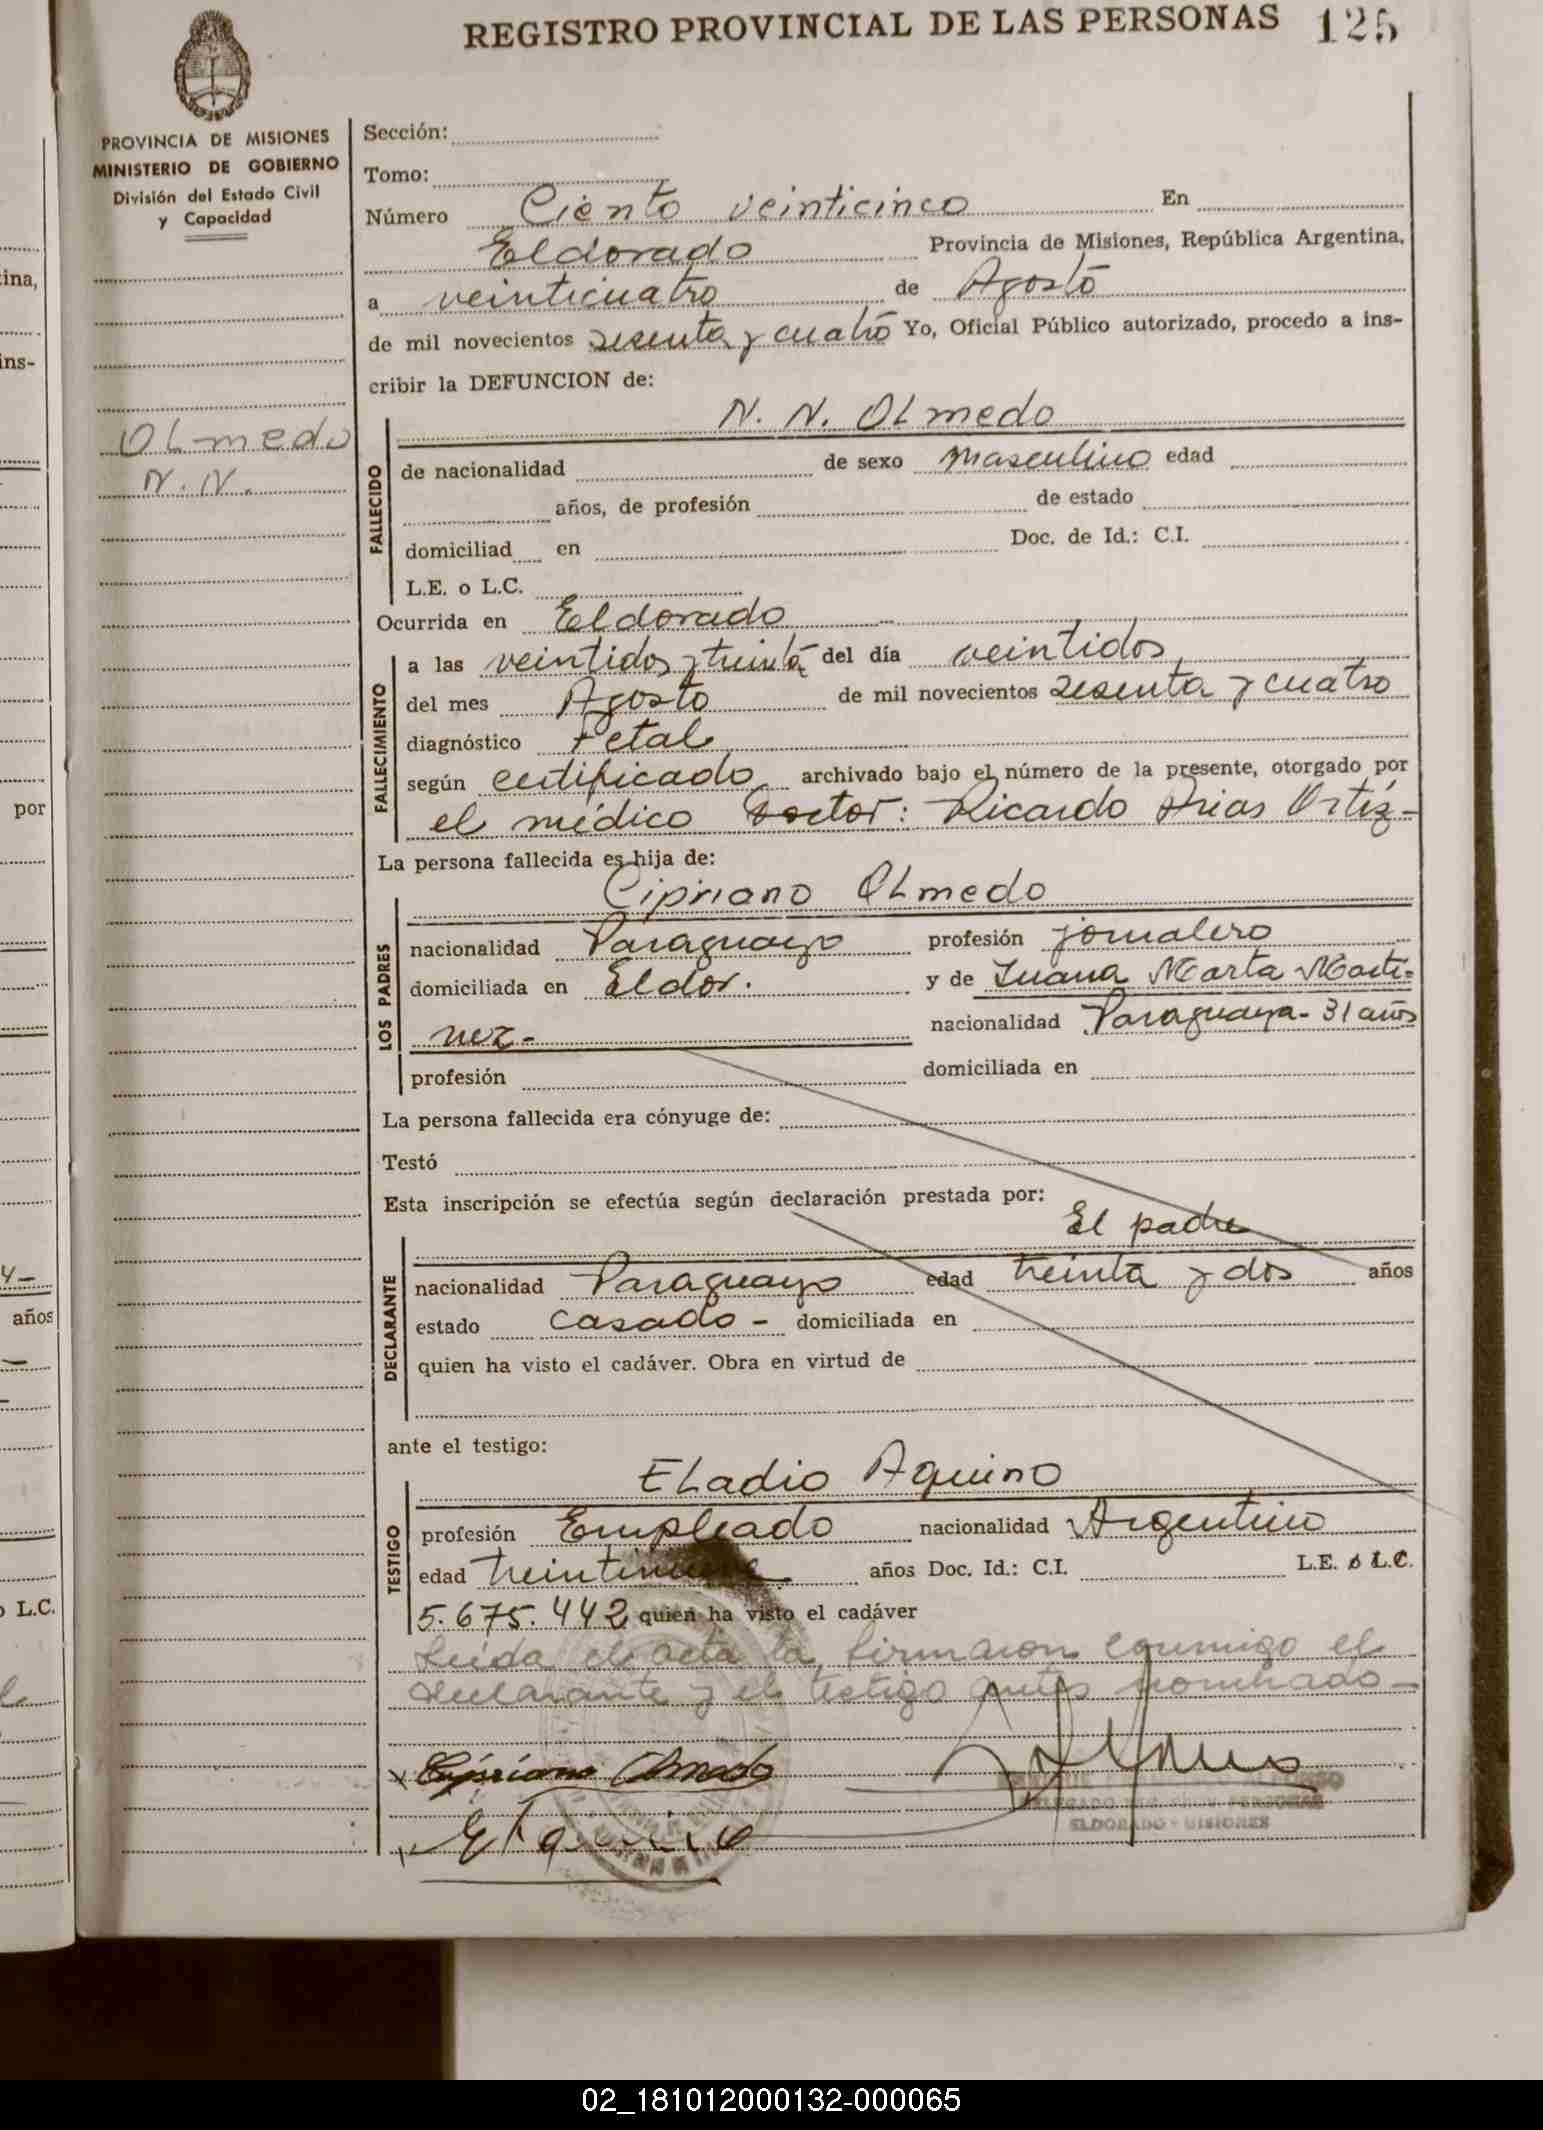 REGISTRO PROVINCIAL DE LAS PERSONAS 125
PROVINCIA DE MISIONES
MINISTERIO DE GOBIERNO
División del Estado Civil
y Capacidad
Olmedo
N. N.
Sección:
Tomo:
Número Ciento veinticinco En
Eldorado Provincia de Misiones, República Argentina,
a veinticuatro de Agosto
de mil novecientos sesenta y cuatro Yo, Oficial Público autorizado, procedo a ins-
cribir la DEFUNCION de:
N. N. Olmedo
FALLECIDO
de nacionalidad de sexo Masculino edad
años, de profesión de estado
domiciliad en Doc. de Id.: C.I.
L.E. o L.C.
Ocurrida en Eldorado
FALLECIMIENTO
a las veintidos y treinta del día veintidos
del mes Agosto de mil novecientos sesenta y cuatro
diagnóstico Fetal
según certificado archivado bajo el número de la presente, otorgado por
el médico Doctor: Ricardo Arias Ortíz-
La persona fallecida es hija de:
Cipriano Olmedo
LOS PADRES
nacionalidad Paraguayo profesión jornalero
domiciliada en Eldor. y de Juana Marta Marti=
nez- nacionalidad Paraguaya- 31 años
profesión domiciliada en
La persona fallecida era cónyuge de:
Testó
Esta inscripción se efectúa según declaración prestada por:
El padre
DECLARANTE
nacionalidad Paraguayo edad treinta y dos años
estado casado - domiciliada en
quien ha visto el cadáver. Obra en virtud de
ante el testigo:
Eladio Aquino
TESTIGO
profesión Empleado nacionalidad Argentino
edad años Doc. Id.: C.I. L.E. ó L.C.
5.675.442 quien ha visto el cadáver
Leida el acta la firmaron conmigo el
declarante y el testigo antes nombrado-
x Cipriano Olmedo
x E Aquino
ELDORADO - MISIONES
ina,
ins-
por
años
o L.C.
02_181012000132-000065